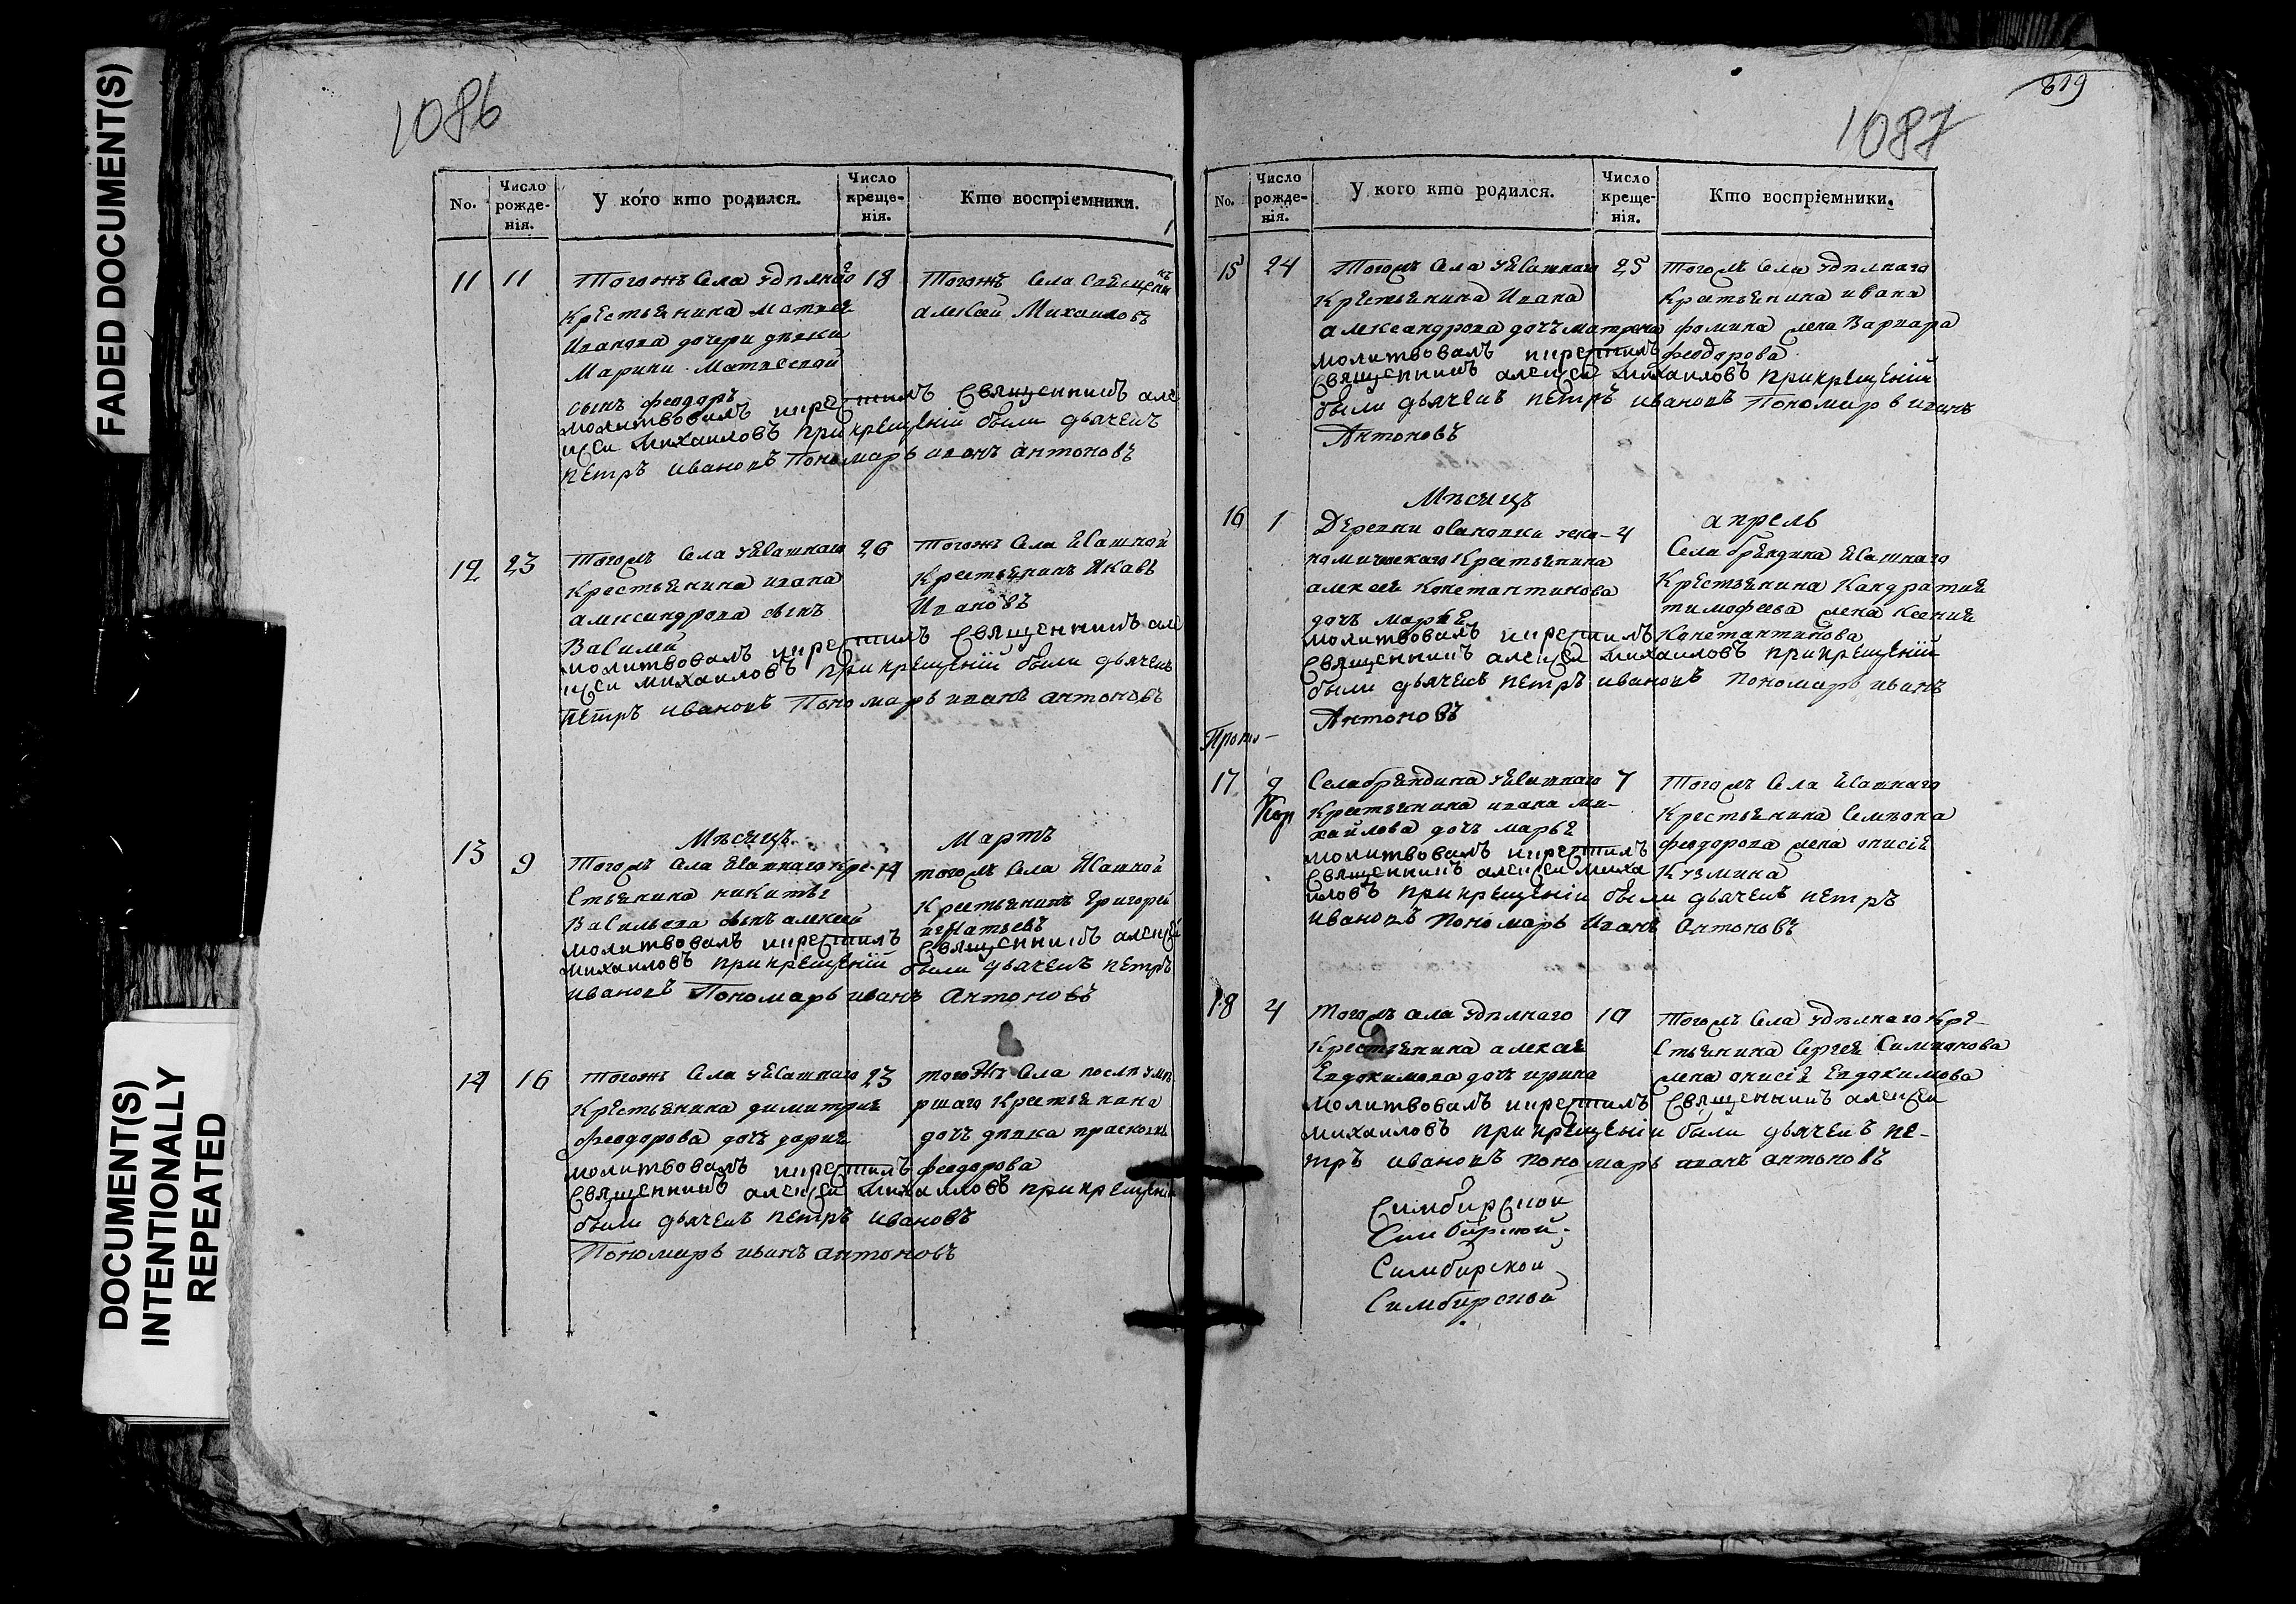 FADED DOCUMENT(S)
DOCUMENT(S)
INTENTIONALLY
REPEATED
1086
No.
Число рожде-нія.
У кого кто родился.
Число креще-нія.
Кто воспріемники.
11 11 Тогожъ Села удѣлнаго 18 Тогожъ Села Священникъ
Крестьянина матвея алексей Михаиловъ
Иванова дочери дѣвки
Марини Матвеевой
сынъ феодоръ
молитвовалъ икрестилъ Священникъ але
ксеи Михаиловъ прикрещеніи были дьячекъ
петръ ивановъ Пономарь иванъ антоновъ
12 23 Тогожъ Села 26 Тогожъ Села
Крестьянина ивана Крестьянинъ Яковъ
александрова сынъ Ивановъ
Василей
молитвовалъ икрестилъ Священникъ але
ксеи михаиловъ прикрещеніи были дьячекъ
петръ ивановъ Пономарь иванъ антоновъ
Мѣсяцъ Мартъ
13 9 Тогожъ Села Кре- 14 тогожъ Села
стьянина никиты Крестьянинъ Григорей
Васильева сынъ алексей игнатьевъ
молитвовалъ икрестилъ Священникъ алексеи
михаиловъ прикрещеніи были дьячекъ петръ
ивановъ Пономарь иванъ антоновъ
14 16 тогожъ Села 23 тогожъ Села послѣ уме
Крестьянина димитрия ршаго крестьянина
феодорова дочь дария дочь дѣвка
молитвовалъ икрестилъ феодорова
Священникъ алексеи Михаиловъ прикрещеніи
были дьячекъ петръ ивановъ
Пономарь иванъ антоновъ
819
1087
No.
Число рожде-нія.
У кого кто родился.
Число креще-нія.
Кто воспріемники.
15 24 Тогожъ Села 25 Тогожъ Села удѣлнаго
Крестьянина Ивана Крестьянина ивана
александрова дочь матрена фомина жена Варвара
молитвовалъ икрестилъ феодорова
Священникъ алексеи Михаиловъ прикрещеніи
были дьячекъ петръ ивановъ Пономарь иванъ
Антоновъ
Мѣсяцъ апрель
16 1 Деревни эко- 4 Села бряндина
номическаго Крестьянина Крестьянина Кандратия
алексея Константинова тимофеева жена Ксения
дочь марья Константинова
молитвовалъ икрестилъ
Священникъ алексеи Михаиловъ прикрещеніи
были дьячекъ петръ ивановъ пономарь иванъ
Антоновъ
17 2 Села бряндина 7 Тогожъ Села
Крестьянина ивана ми- Крестьянина Семиона
хайлова дочь марья феодорова жена
молитвовалъ икрестилъ Кузмина
Священникъ алексеи миха
иловъ прикрещеніи были дьячекъ петръ
ивановъ пономарь Иванъ Антоновъ
18 4 Тогожъ села удѣлнаго 10 Тогожъ Села удѣлнаго Кре-
Крестьянина алексея стьянина Сергея Симионова
Евдокимова дочь ирина жена Евдокимова
молитвовалъ икрестилъ Священникъ алексеи
михаиловъ прикрещеніи были дьячекъ пе-
тръ ивановъ пономарь иванъ антоновъ
Симбирской
Симбирской
Симбирской
Симбирской